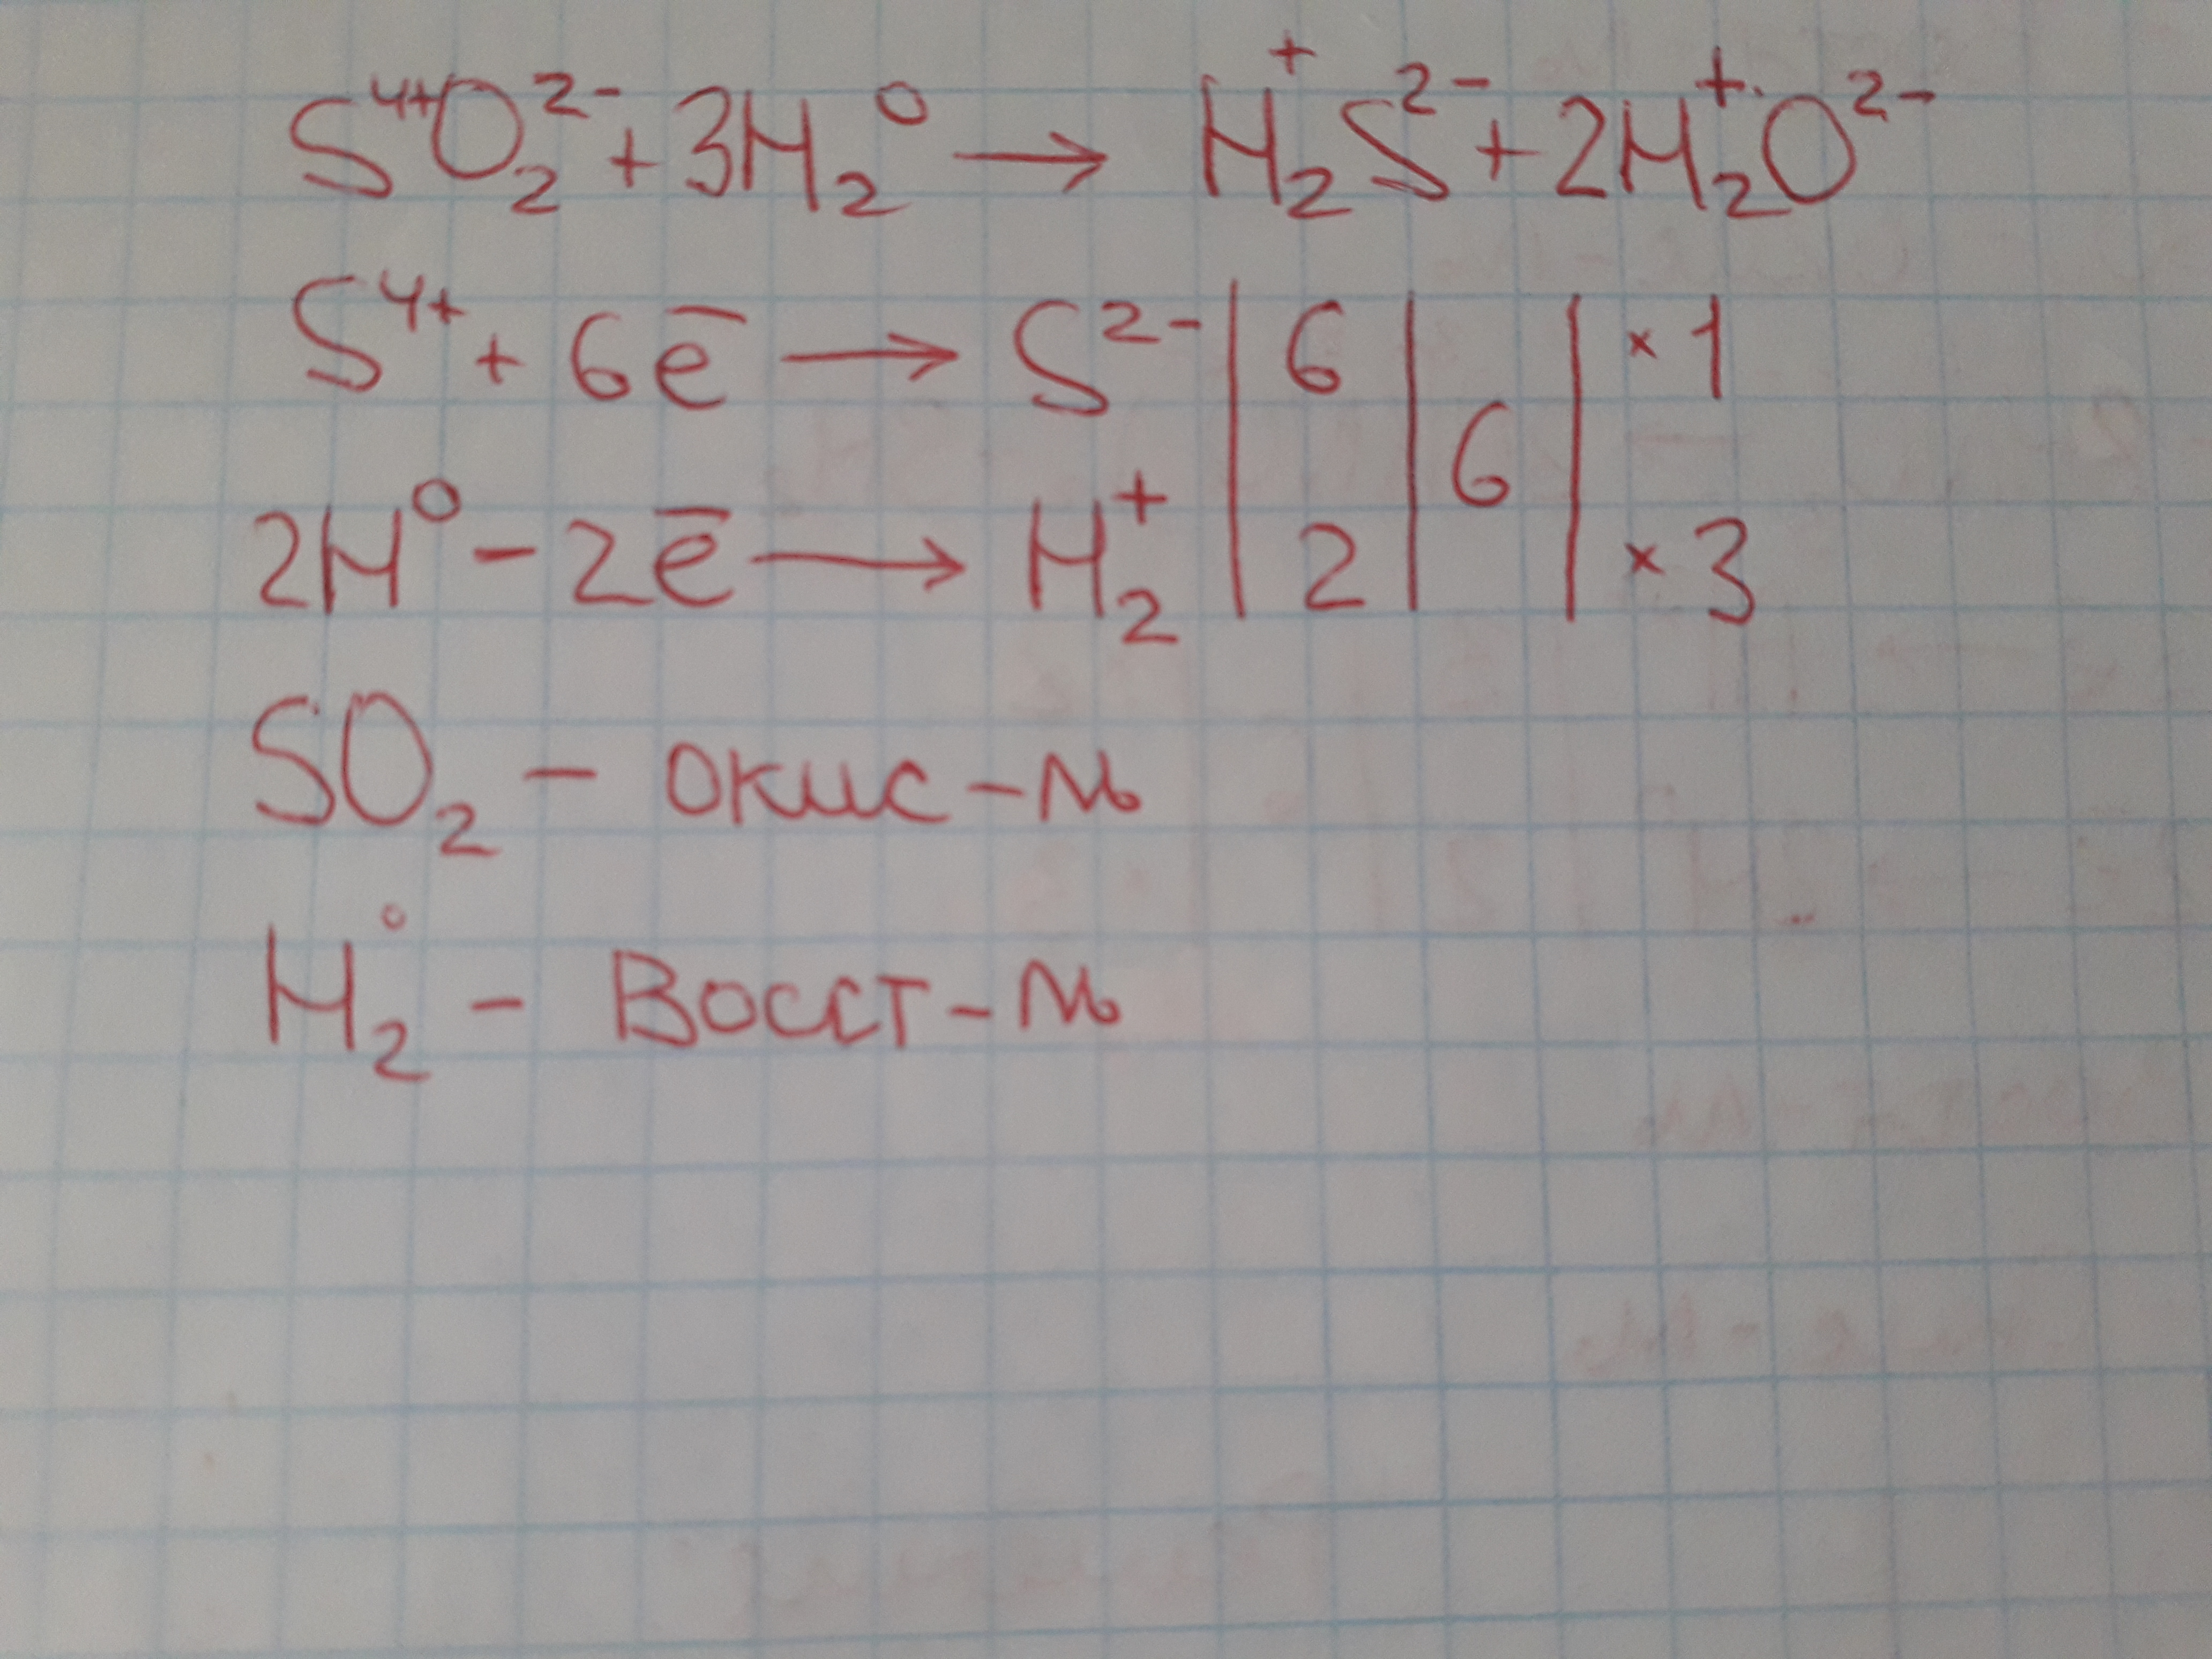 S⁴⁺O₂²⁻ + 3H₂⁰ → H₂⁺S²⁻ + 2H₂⁺O²⁻
S⁴⁺ + 6e̅ → S²⁻ | 6 | 6 | × 1
2H⁰ - 2e̅ → H₂⁺ | 2 | | × 3
SO₂ - окис-ль
H₂⁰ - Восст-ль